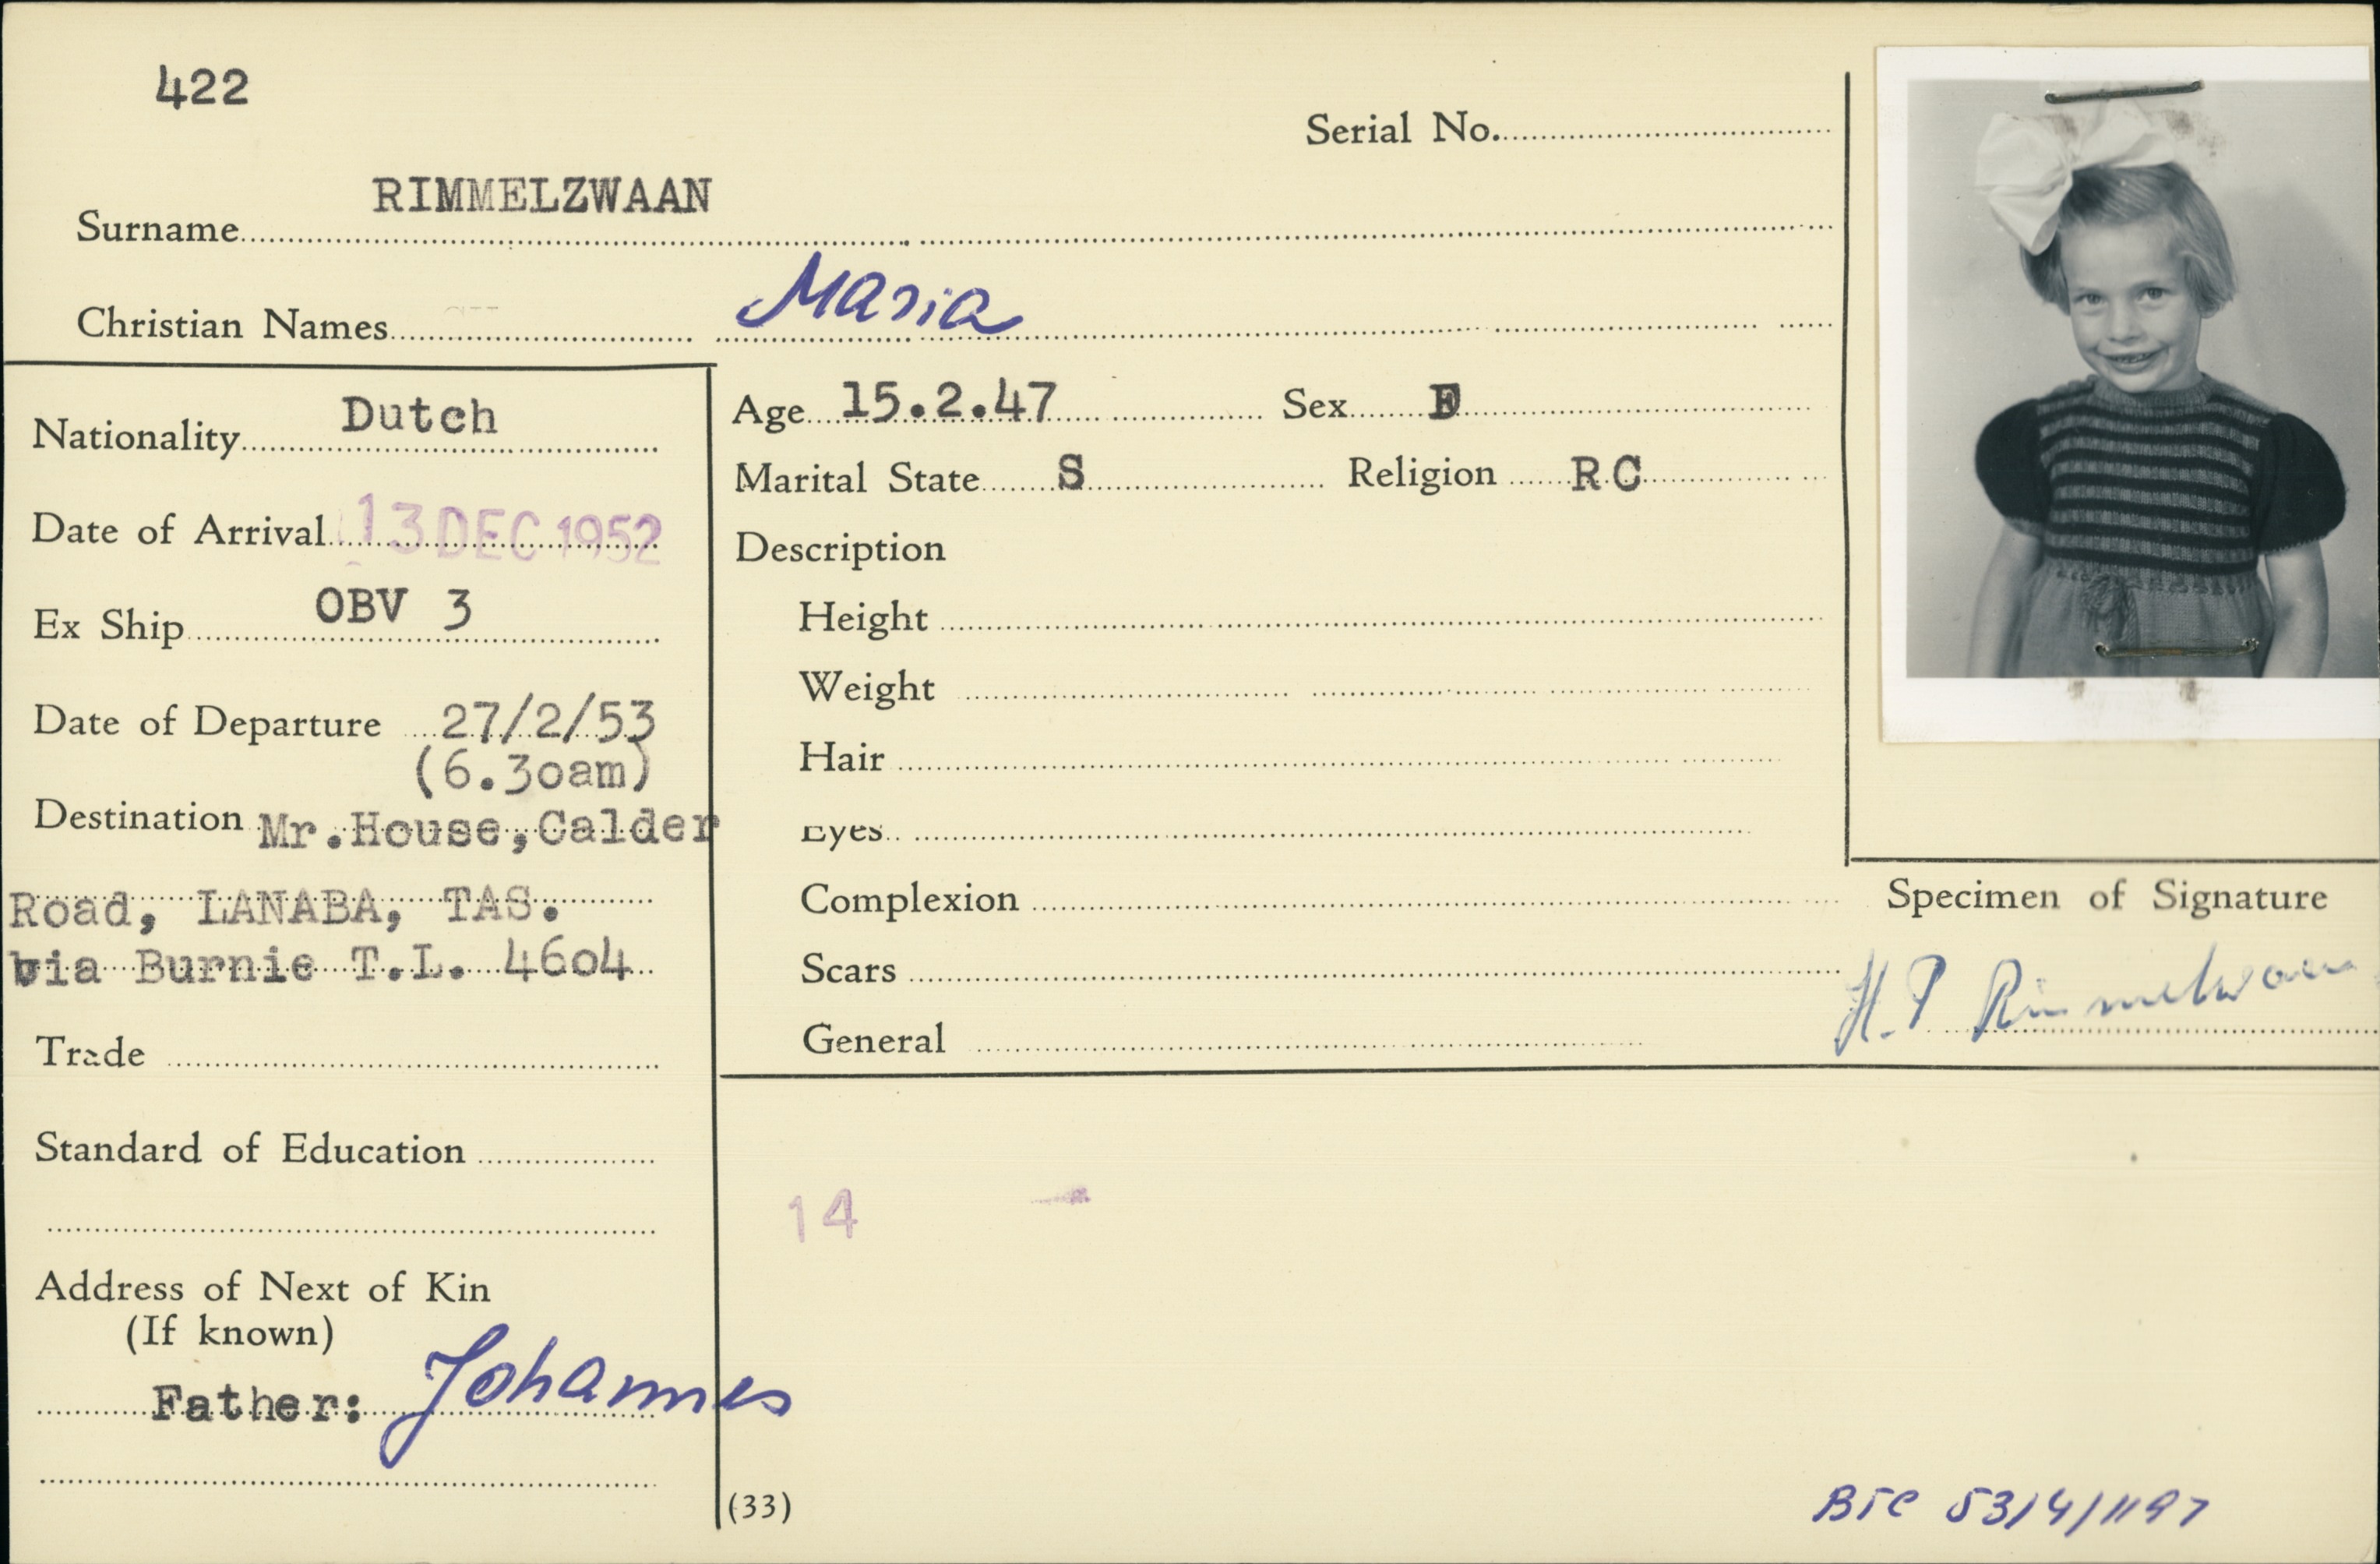 422
Serial No.
Surname RIMMELZWAAN
Christian Names Maria
Nationality Dutch
Date of Arrival 13 DEC 1952
Ex Ship OBV 3
Date of Departure 27/2/53
(6.30am)
Destination Mr.House,Calder
Road, LANABA, TAS.
via Burnie T.L. 4604
Trade
Standard of Education
Address of Next of Kin
(If known)
Father: Johannes
Age 15.2.47 Sex F
Marital State S Religion RC
Description
Height
Weight
Hair
Eyes
Complexion
Scars
General
14
(33)
Specimen of Signature
H.P Rimmelzwaan
BTC 53/4/1197